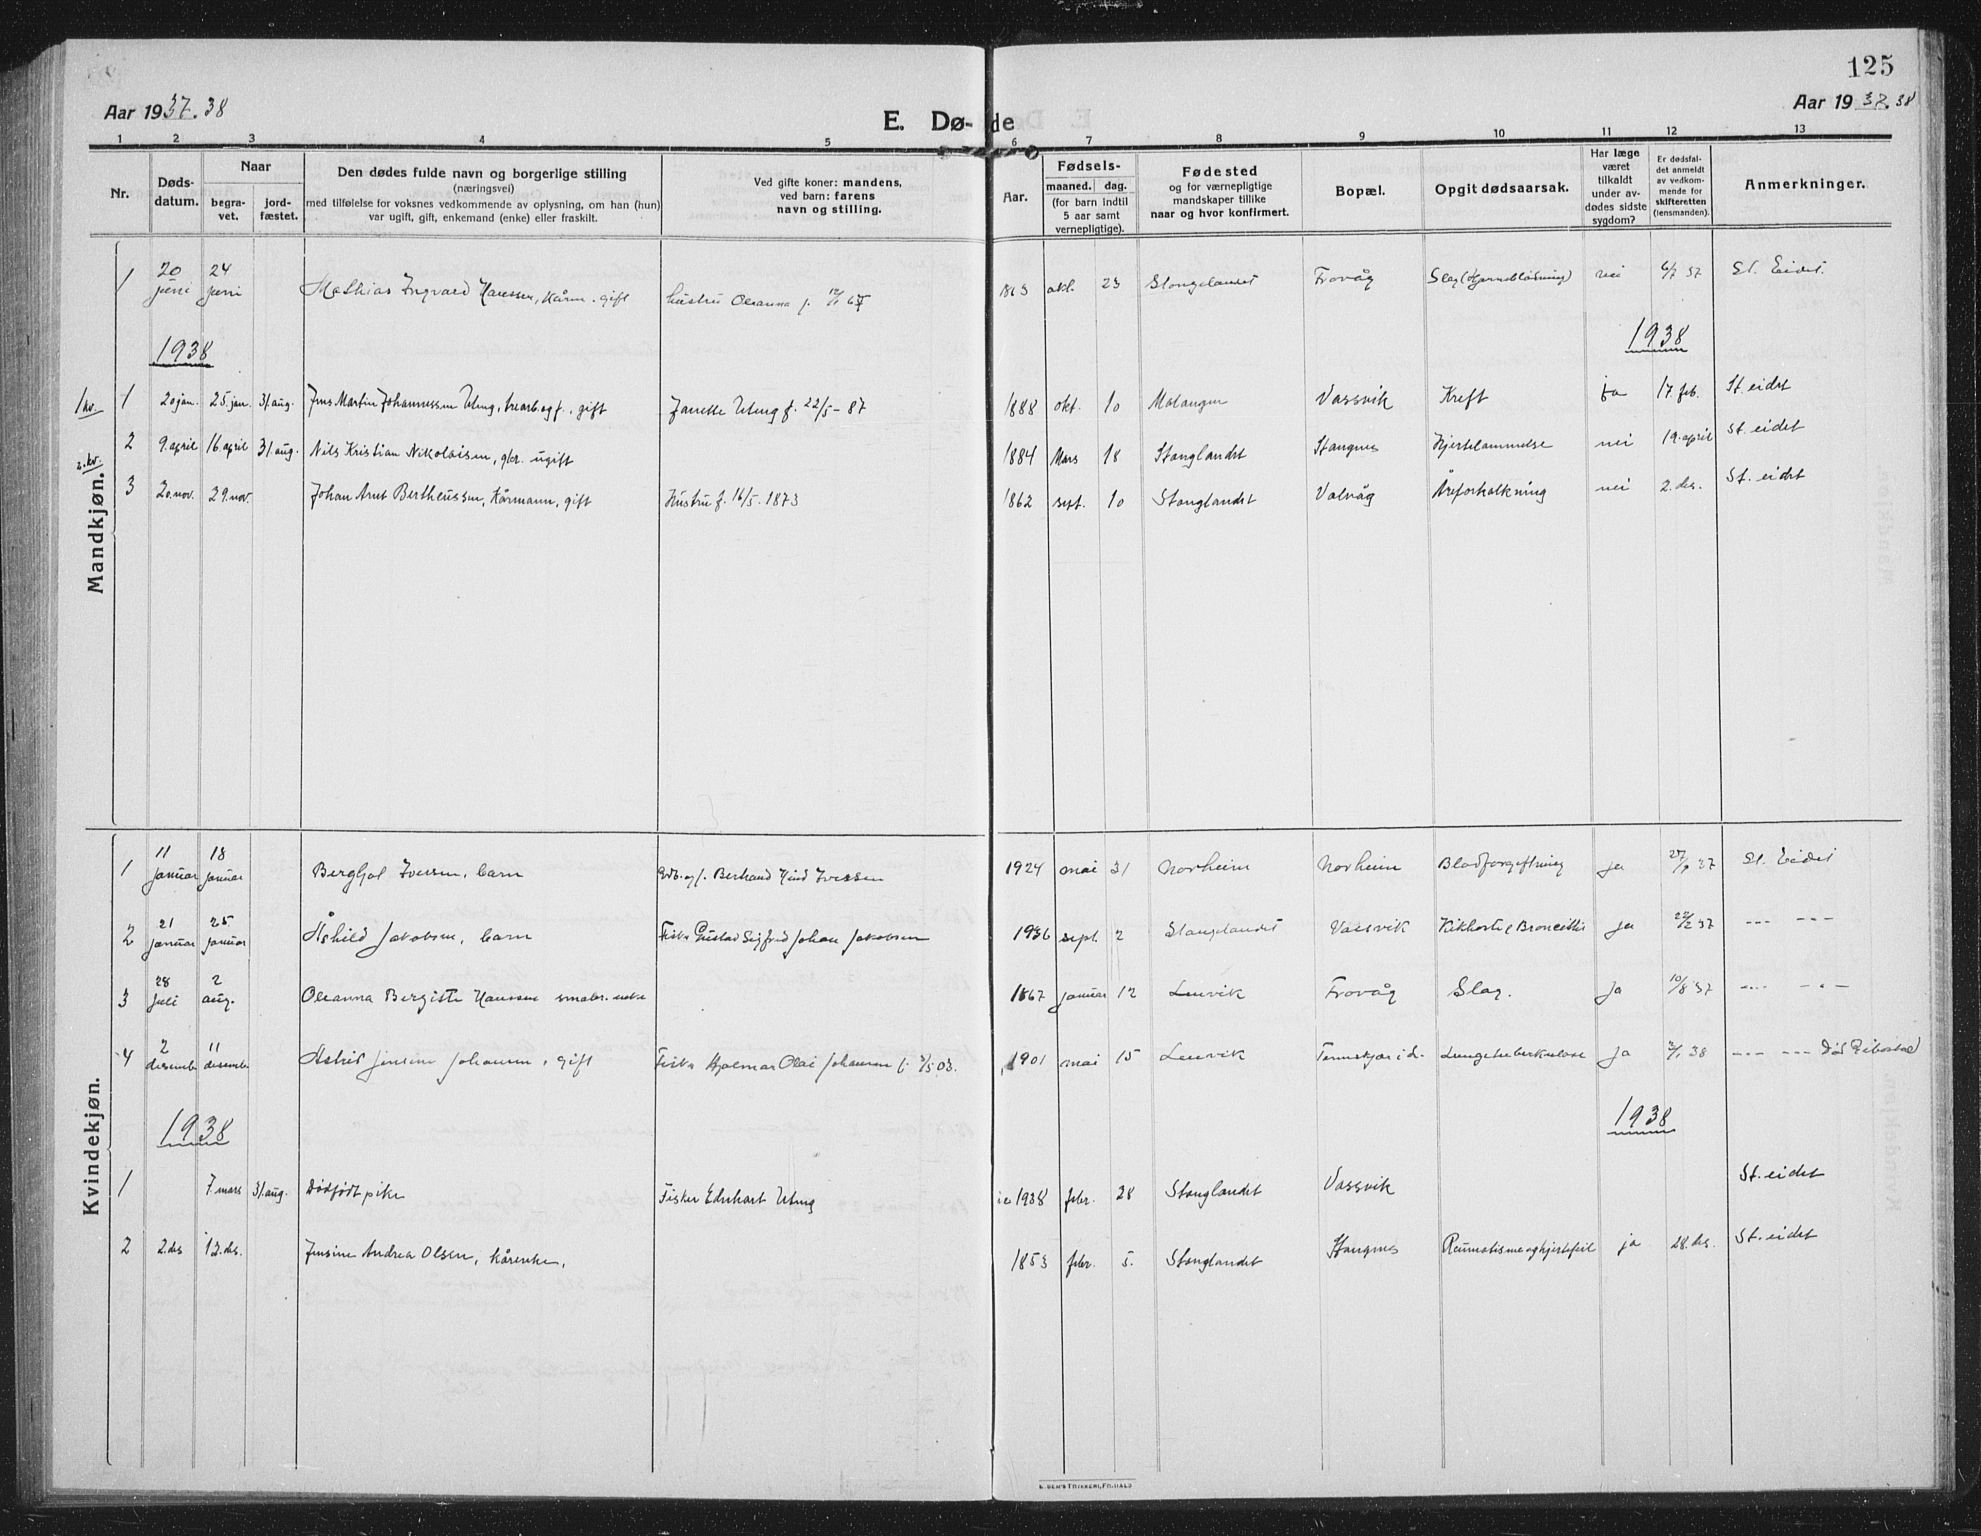 125
Aar 1937.38
E. Dø-de
Aar 1937.38
1 2 3 4 5 6 7 8 9 10 11 12 13
Nr.
Døds-datum.
Naar
begra-vet.
jord-fæstet.
Den dødes fulde navn og borgerlige stilling
(næringsvei)
med tilføielse for voksnes vedkommende av oplysning, om han (hun)
var ugift, gift, enkemand (enke) eller fraskilt.
Ved gifte koner: mandens,
ved barn: farens
navn og stilling.
Aar.
Fødsels-
maaned. dag.
(for barn indtil
5 aar samt
vernepligtige).
Fødested
og for værnepligtige
mandskaper tillike
naar og hvor konfirmert.
Bopæl.
Opgit dødsaarsak.
Har læge
været
tilkaldt
under av-
dødes sidste
sygdom?
Er dødsfal-
det anmeldt
av vedkom-
mende for
skifteretten
(lensmanden).
Anmerkninger.
Mandkjøn.
1 20 juni 24 juni Mathias Ingvard Hanssen, Kårm. gift hustru Oleanna f. 12/1 67 1863 okt. 23 Stangelandet Frovåg Slag (Hjerneblødning) nei 6/7 37 St. Eidet.
1938 1938
1 kv. 1 20 jan. 25. jan. 31. aug. Jens Martin Johannessen Uteng, trearb. og f., gift Janette Uteng f. 22/5-87 1888 okt. 10 Malangen Vassvik Kreft ja 17. feb. St. eidet
2. kv. 2 9. april 16. april 31. aug. Nils Kristian Nikolaisen, gbr. ugift 1884 Mars 18 Stanglandet Stangnes Hjertelammelse nei 19. april St. eidet
3 20. nov. 29. nov. Johan Arnt Bertheussen, Kårmann, gift Hustru f. 16/5. 1873 1862 sept. 10 Stanglandet Valvåg Åreforkalkning nei 2. des. St. eidet
Kvindekjøn.
1 11 januar 18 januar Bergljot Iversen, barn Gdb. og f. Bertrand Hind Iverssen 1924 mai 31 Norheim Norheim Blodforgiftning ja 37 St. Eidet
2 21 januar 25 januar Åshild Jakobsen, barn Fisker Gustav Sigfred Johan Jakobsen 1936 sept. 2 Stanglandet Vassvik Kikhoste & Broncittis ja 22/2 37 --- ---
3 28 juli 2 aug. Oleanna Bergitte Hanssen småbr. enke 1867 januar 12 Lenvik Frovåg Slag. Ja 10/8 37 --- ---
4 2 desember 11 desember Astrid Jensine Johansen, gift Fisker Hjalmar Olai Johansen f. 2/5 03. 1901 mai 15 Lenvik Tennskjær i d. Lungetuberkulose ja 3/1 38 --- --- død Gibostad
1938 1938
1 7. mars 31. aug. Dødfødt pike Fisker Edvhart Uteng 1938 febr. 28 Stanglandet Vassvik St. eidet
2 2. des 13. des. Jensine Andrea Olsen, kårenke, 1853 febr. 5. Stanglandet Stangnes Reumatisme og hjertefeil ja 28. des. St. eidet